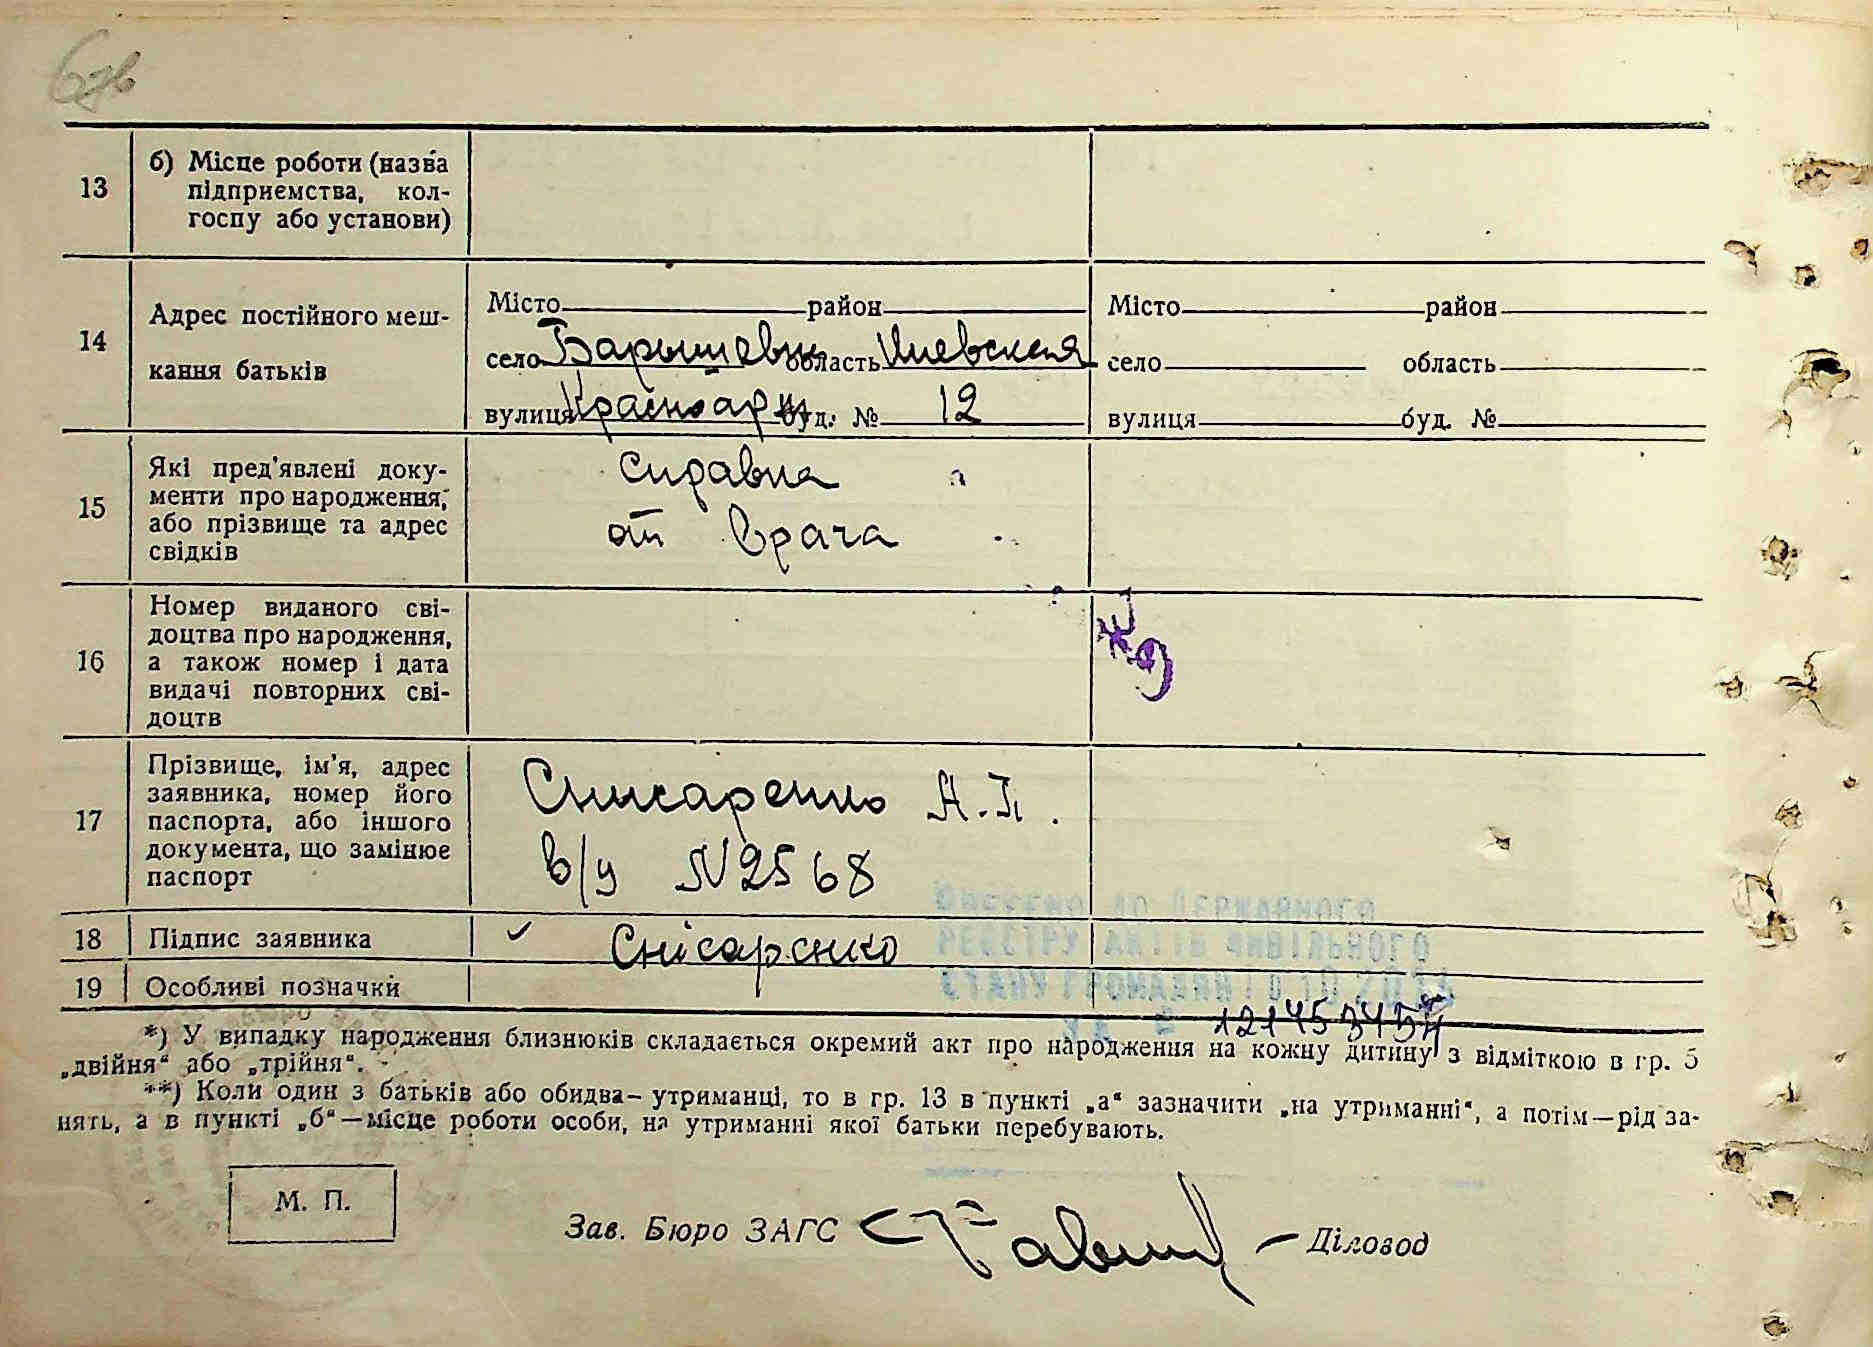 67в
13
б) Місце роботи (назва
підприємства, кол-
госпу або установи)
14
Адрес постійного меш-
кання батьків
Місто район
село Барышевка область Киевская
вулиця Красноарм буд. № 12
Місто район
село область
вулиця буд. №
15
Які пред'явлені доку-
менти про народження,
або прізвище та адрес
свідків
Справка
от врача
16
Номер виданого сві-
доцтва про народження,
а також номер і дата
видачі повторних сві-
доцтв
17
Прізвище, ім'я, адрес
заявника, номер його
паспорта, або іншого
документа, що замінює
паспорт
Снисаренко А.П.
в/у N 2568
18
Підпис заявника
Снісаренко
19
Особливі позначки
ВНЕСЕНО ДО ДЕРЖАВНОГО
РЕЄСТРУ АКТІВ ЦИВІЛЬНОГО
СТАНУ ГРОМАДЯН
*) У випадку народження близнюків складається окремий акт про народження на кожну дитину з відміткою в гр. 5
„двійня“ або „трійня“.
**) Коли один з батьків або обидва— утриманці, то в гр. 13 в пункті „а“ зазначити „на утриманні“, а потім—рід за-
нять, а в пункті „б“—місце роботи особи, на утриманні якої батьки перебувають.
М. П.
Зав. Бюро ЗАГС
Діловод